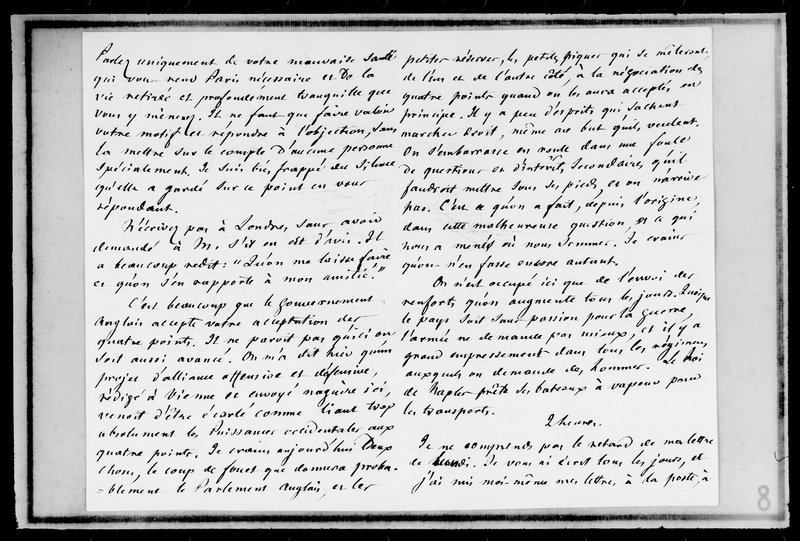 Parlez uniquement de votre mauvaise santé
qui vous rend Paris nécessaire et de la
vie retirée et profondément tranquille que
vous y menez. Il ne faut que faire valoir
votre motif et répondre à l'objection, sans
la mettre sur le compte d'aucune personne
spécialement. Je suis très frappé du silence
qu'elle a gardé sur ce point en vous
répondant.
N'écrivez pas à Londres sans avoir
demandé à M. s'il en est d'avis. Il
a beaucoup redit : "Qu'on me laisse faire
et qu'on s'en rapporte à mon amitié."
C'est beaucoup que le gouvernement
Anglais accepte votre acceptation des
quatre points. Il ne paroit pas qu'ici on
soit aussi avancé. On m'a dit hier qu'un
projet d'alliance offensive et défensive,
rédigé à Vienne et envoyé naguère ici,
venoit d'être écarté comme liant trop
absolument les Puissances occidentales aux
quatre points. Je crains aujourd'hui deux
choses, le coup de fouet que donnera proba-
-blement le Parlement anglais, et les
petites réserves, les petites piques qui se mêleront,
de l'un et de l'autre côté, à la négociation des
quatre points quand on les aura acceptés en
principe. Il y a peu d'esprits qui sachent
marcher droit, même au but qu'ils veulent.
On s'embarrasse en route dans une foule
de questions et d'intérêts secondaires qu'il
faudroit mettre sous ses pieds, et on n'arrive
pas. C'est ce qu'on a fait, depuis l'origine,
dans cette malheureuse question, et ce qui
nous a menés où nous sommes. Je crains
qu'on n'en fasse encore autant.
On n'est occupé ici que de l'envoi des
renforts qu'on augmente tous les jours. Quoique
le pays soit sans passion pour la guerre,
l'armée ne demande pas mieux, et il y a
grand empressement dans tous les régimens
auxquels on demande des hommes. Le Roi
de Naples prête ses bateaux à vapeur pour
les transports.
2 heures.
Je ne comprends pas le retard de ma lettre
de lundi. Je vous ai écrit tous les jours, et
j'ai mis moi-même mes lettres à la poste, à
8